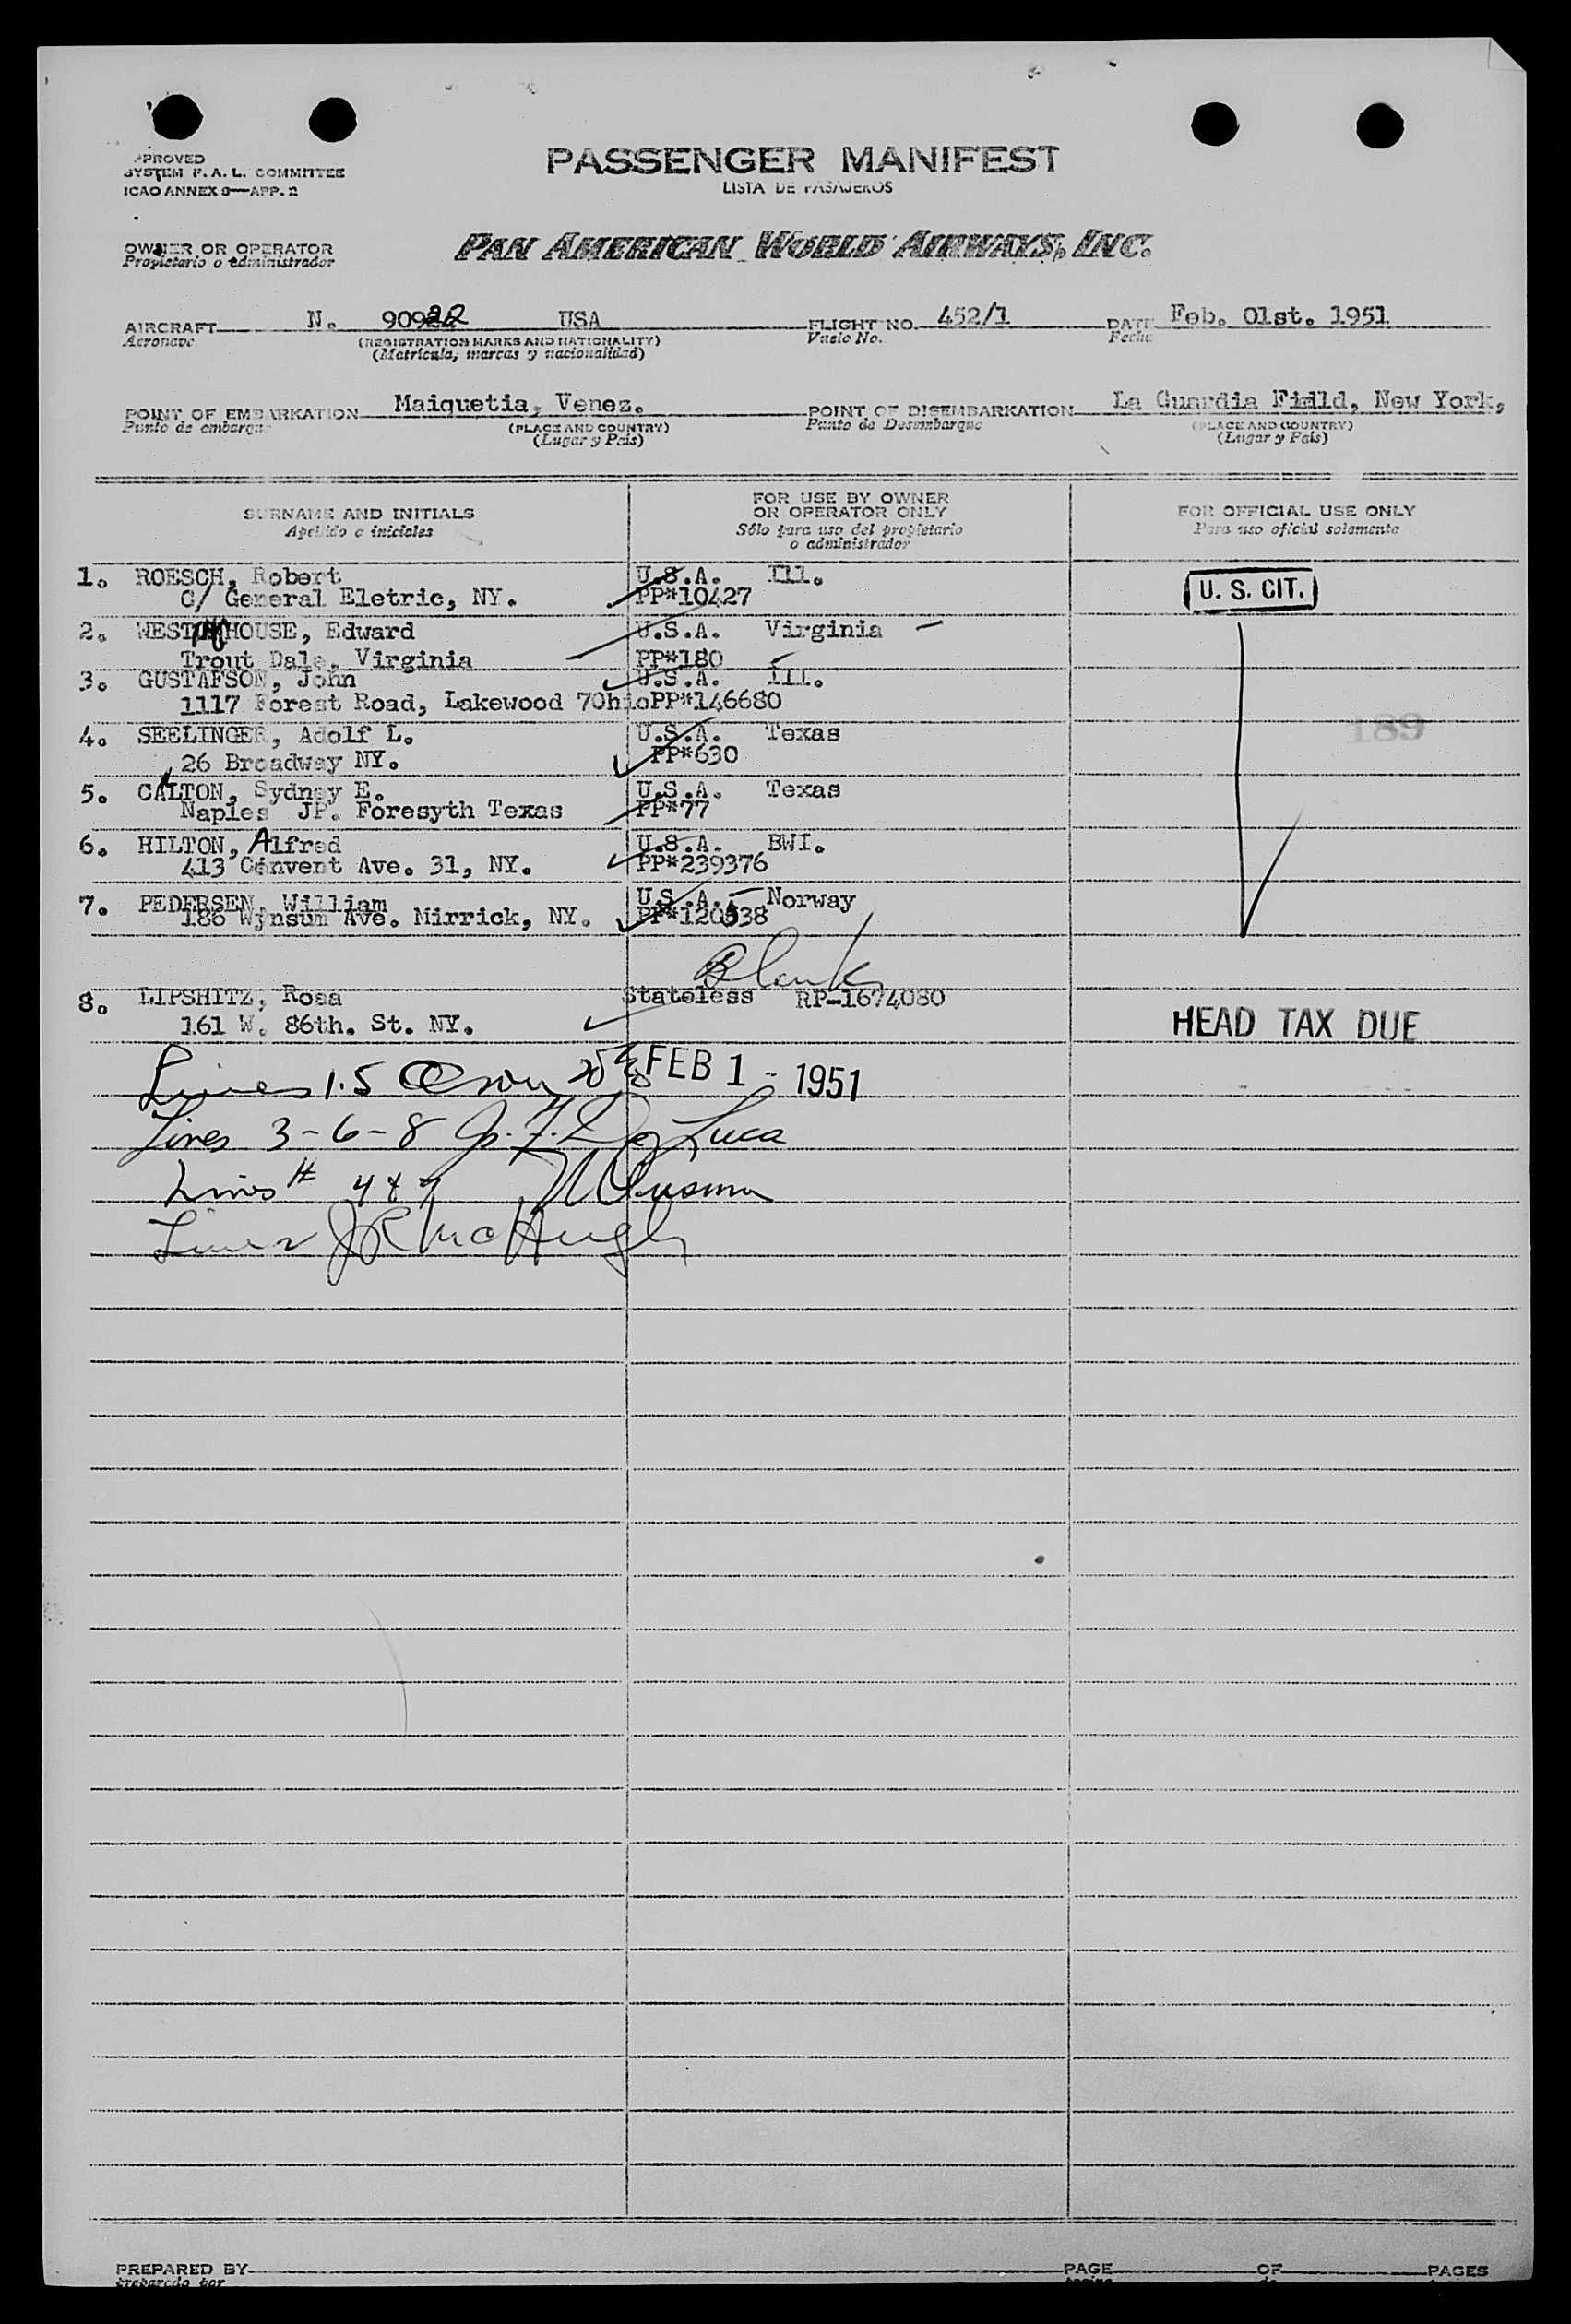 PROVED
SYSTEM F. A. L. COMMITTEE
ICAO ANNEX 9—APP. 2
PASSENGER MANIFEST
LISTA DE PASAJEROS
OWNER OR OPERATOR
Propietario o administrador
PAN AMERICAN WORLD AIRWAYS, INC.
AIRCRAFT N. 90922 USA
Aeronave
(REGISTRATION MARKS AND NATIONALITY)
(Matrícula, marcas y nacionalidad)
FLIGHT NO. 452/1
Vuelo No.
DATE Feb. 01st. 1951
Fecha
POINT OF EMBARKATION Maiquetia, Venez.
Punto de embarque
(PLACE AND COUNTRY)
(Lugar y País)
POINT OF DISEMBARKATION La Guardia Fiild, New York,
Punto de Desembarque
(PLACE AND COUNTRY)
(Lugar y País)
SURNAME AND INITIALS
Apellido e iniciales
FOR USE BY OWNER
OR OPERATOR ONLY
Sólo para uso del propietario
o administrador
FOR OFFICIAL USE ONLY
Para uso oficial solamente
1. ROESCH, Robert U.S.A. Ill.
C/ General Eletric, NY. PP*10427
U. S. CIT.
2. WESTHOUSE, Edward U.S.A. Virginia
Trout Dale, Virginia PP*180
3. GUSTAFSON, John U.S.A. Ill.
1117 Forest Road, Lakewood 7Ohio PP*146680
4. SEELINGER, Adolf L. U.S.A. Texas
189
26 Broadway NY. PP*630
5. CALTON, Sydney E. U.S.A. Texas
Naples JP. Foresyth Texas PP*77
6. HILTON, Alfred U.S.A. BWI.
413 Convent Ave. 31, NY. PP*239376
7. PEDERSEN, William U.S.A. Norway
186 Wynsum Ave. Mirrick, NY. PP*120538
Blank
8. LIPSHITZ, Rosa Stateless RP-1674080
161 W. 86th. St. NY.
HEAD TAX DUE
Lines 1.5 FEB 1 - 1951
Lines 3-6-8 De Luca
Lines # 4 & 7
Line 2 JR McHugh
PREPARED BY
Preparado por
PAGE OF PAGES